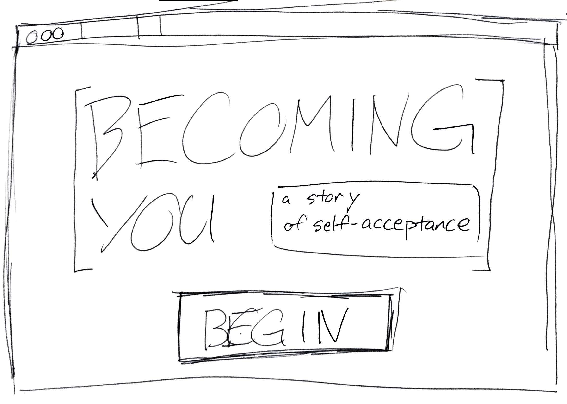 BECOMING
YOU
a story
of self-acceptance
BEGIN